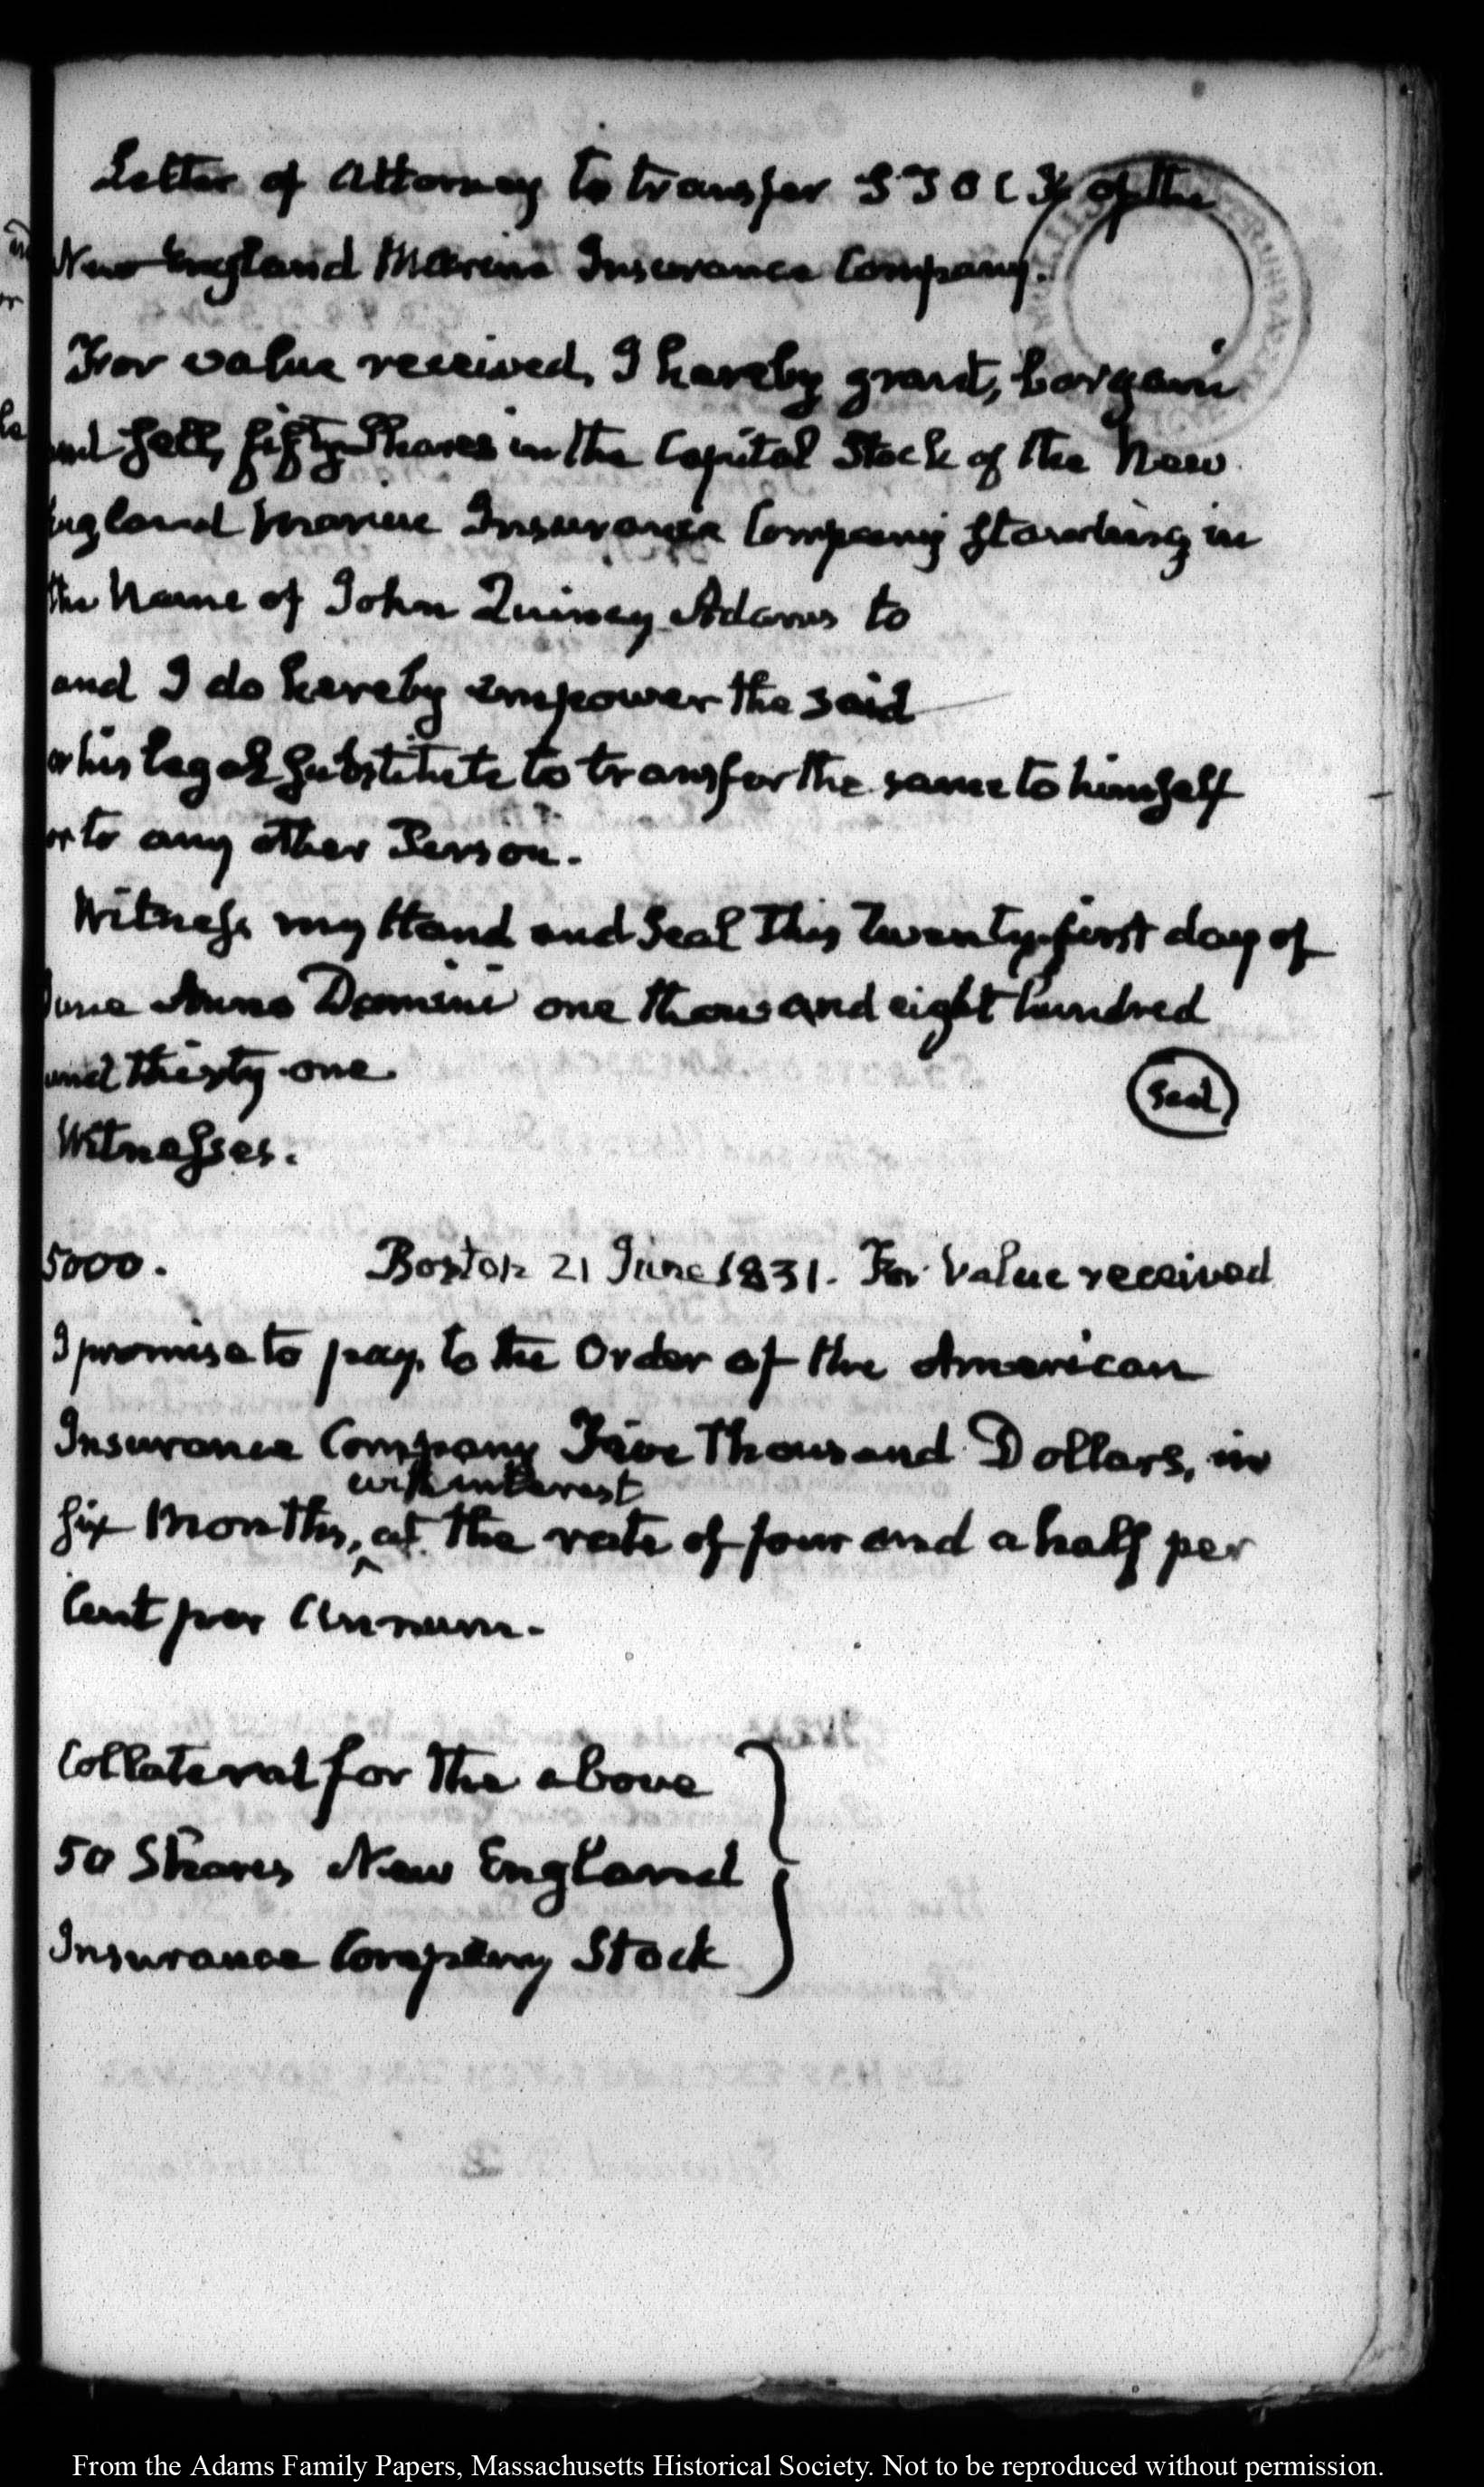 Letter of Attorney to transfer STOCK of the
New England Marine Insurance Company.
For value received, I hereby grant, bargain
and sell, fifty Shares in the Capital Stock of the New
England Marine Insurance Company standing in
the Name of John Quincy Adams to
and I do hereby empower the said
or his legal substitute to transfer the same to himself
or to any other Person.
Witness my Hand and Seal This Twenty-first day of
June Anno Domini one thousand eight hundred
and thirty-one.
Seal
Witnesses.
5000. Boston 21 June 1831. For Value received
I promise to pay, to the Order of the American
Insurance Company Five Thousand Dollars, in
with interest
six Months, ^ at the rate of four and a half per
Cent per Annum.
Collateral for the above
50 Shares New England
Insurance Company Stock
From the Adams Family Papers, Massachusetts Historical Society. Not to be reproduced without permission.